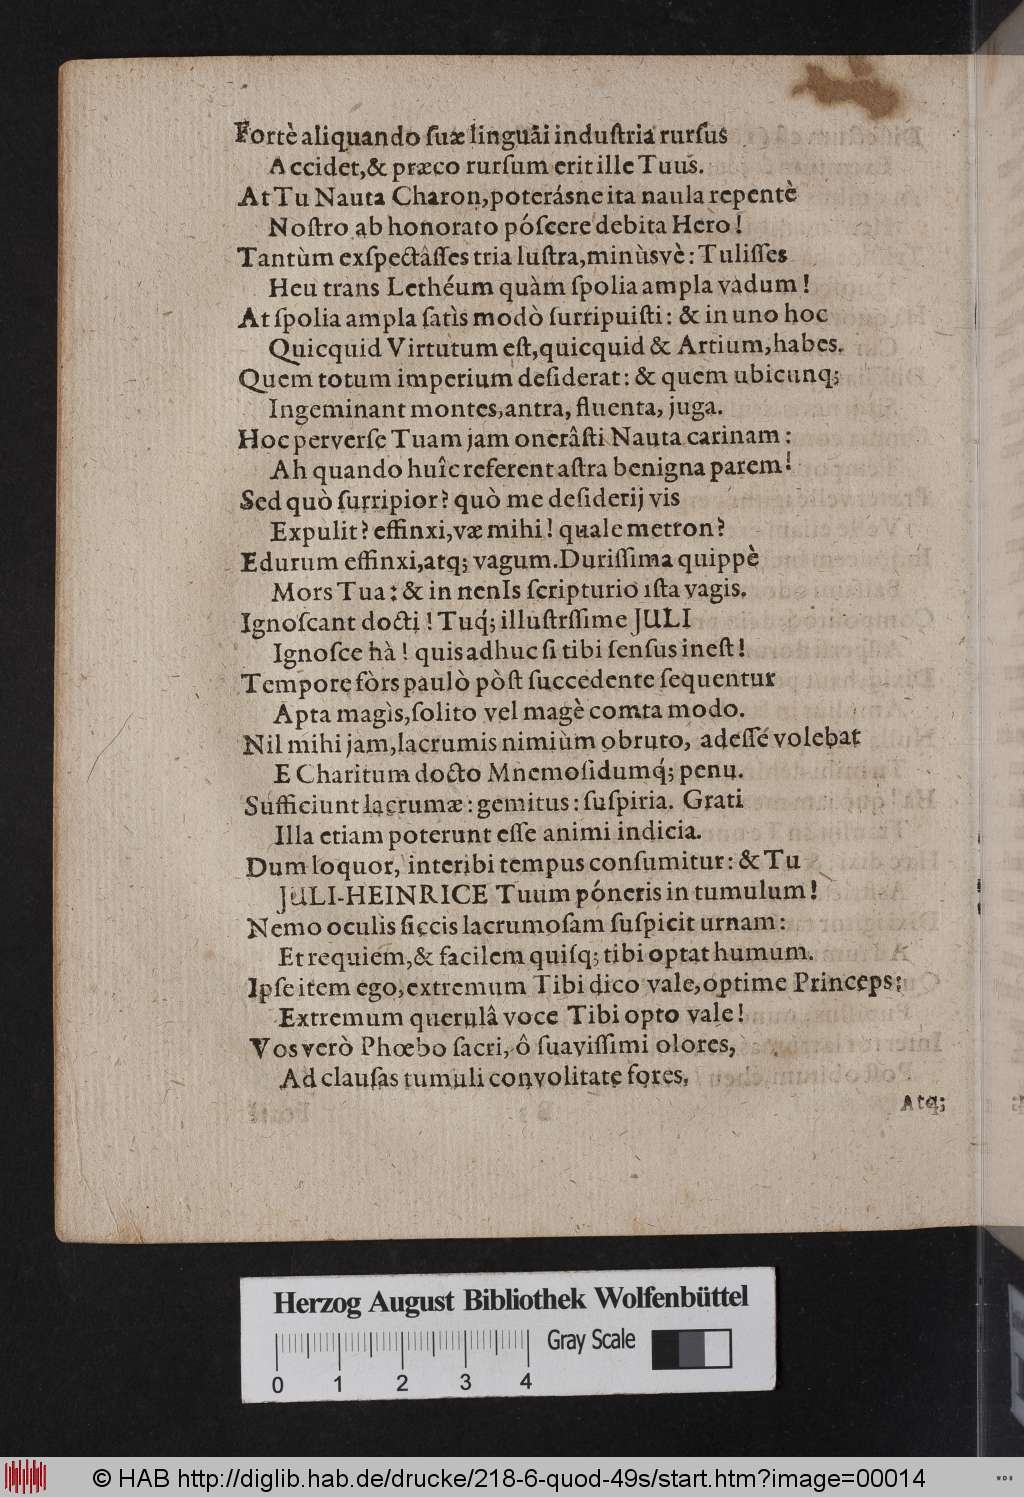 Fortè aliquando ſuæ linguâi induſtria rurſus
Accidet, & præco rurſum erit ille Tuus.
At Tu Nauta Charon, poterásne ita naula repentè
Noſtro ab honorato póſcere debita Hero!
Tantùm exſpectâſſes tria luſtra, minùsvè: Tuliſſes
Heu trans Lethéum quàm ſpolia ampla vadum!
At ſpolia ampla ſatìs modò ſurripuiſti: & in uno hoc
Quicquid Virtutum eſt, quicquid & Artium, habes.
Quem totum imperium deſiderat: & quem ubicunq;
Ingeminant montes, antra, fluenta, juga.
Hoc perverſe Tuam jam onerâſti Nauta carinam:
Ah quando huîc referent aſtra benigna parem!
Sed quò ſurripior? quò me deſiderij vis
Expulit? effinxi, væ mihi! quale metron?
Edurum effinxi, atq; vagum. Duriſſima quippè
Mors Tua: & in nenIs ſcripturio ıſta vagis.
Ignoſcant docti! Tuq́; illuſtrſſime JULI
Ignoſce hà! quis adhuc ſi tibi ſenſus ineſt!
Tempore fòrs paulò pòſt ſuccedente ſequentur
Apta magìs, ſolito vel magè comta modo.
Nil mihi jam, lacrumis nimiùm obruto, adeſſé volebat
E Charitum docto Mnemoſidumq́; penu.
Sufficiunt lacrumæ: gemitus: ſuſpiria. Grati
Illa etiam poterunt eſſe animi indicia.
Dum loquor, interibi tempus conſumitur: & Tu
JULI-HEINRICE Tuum póneris in tumulum!
Nemo oculìs ſiccis lacrumoſam ſuſpicit urnam:
Et requiem, & facilem quiſq; tibi optat humum.
Ipſe item ego, extremum Tibi dico vale, optime Princeps:
Extremum querulâ voce Tibi opto vale!
Vos verò Phœbo ſacri, ô ſuaviſſimi olores,
Ad clauſas tumuli convolitate fores.
Atq;
Herzog August Bibliothek Wolfenbüttel
Gray Scale
0 1 2 3 4
© HAB http://diglib.hab.de/drucke/218-6-quod-49s/start.htm?image=00014